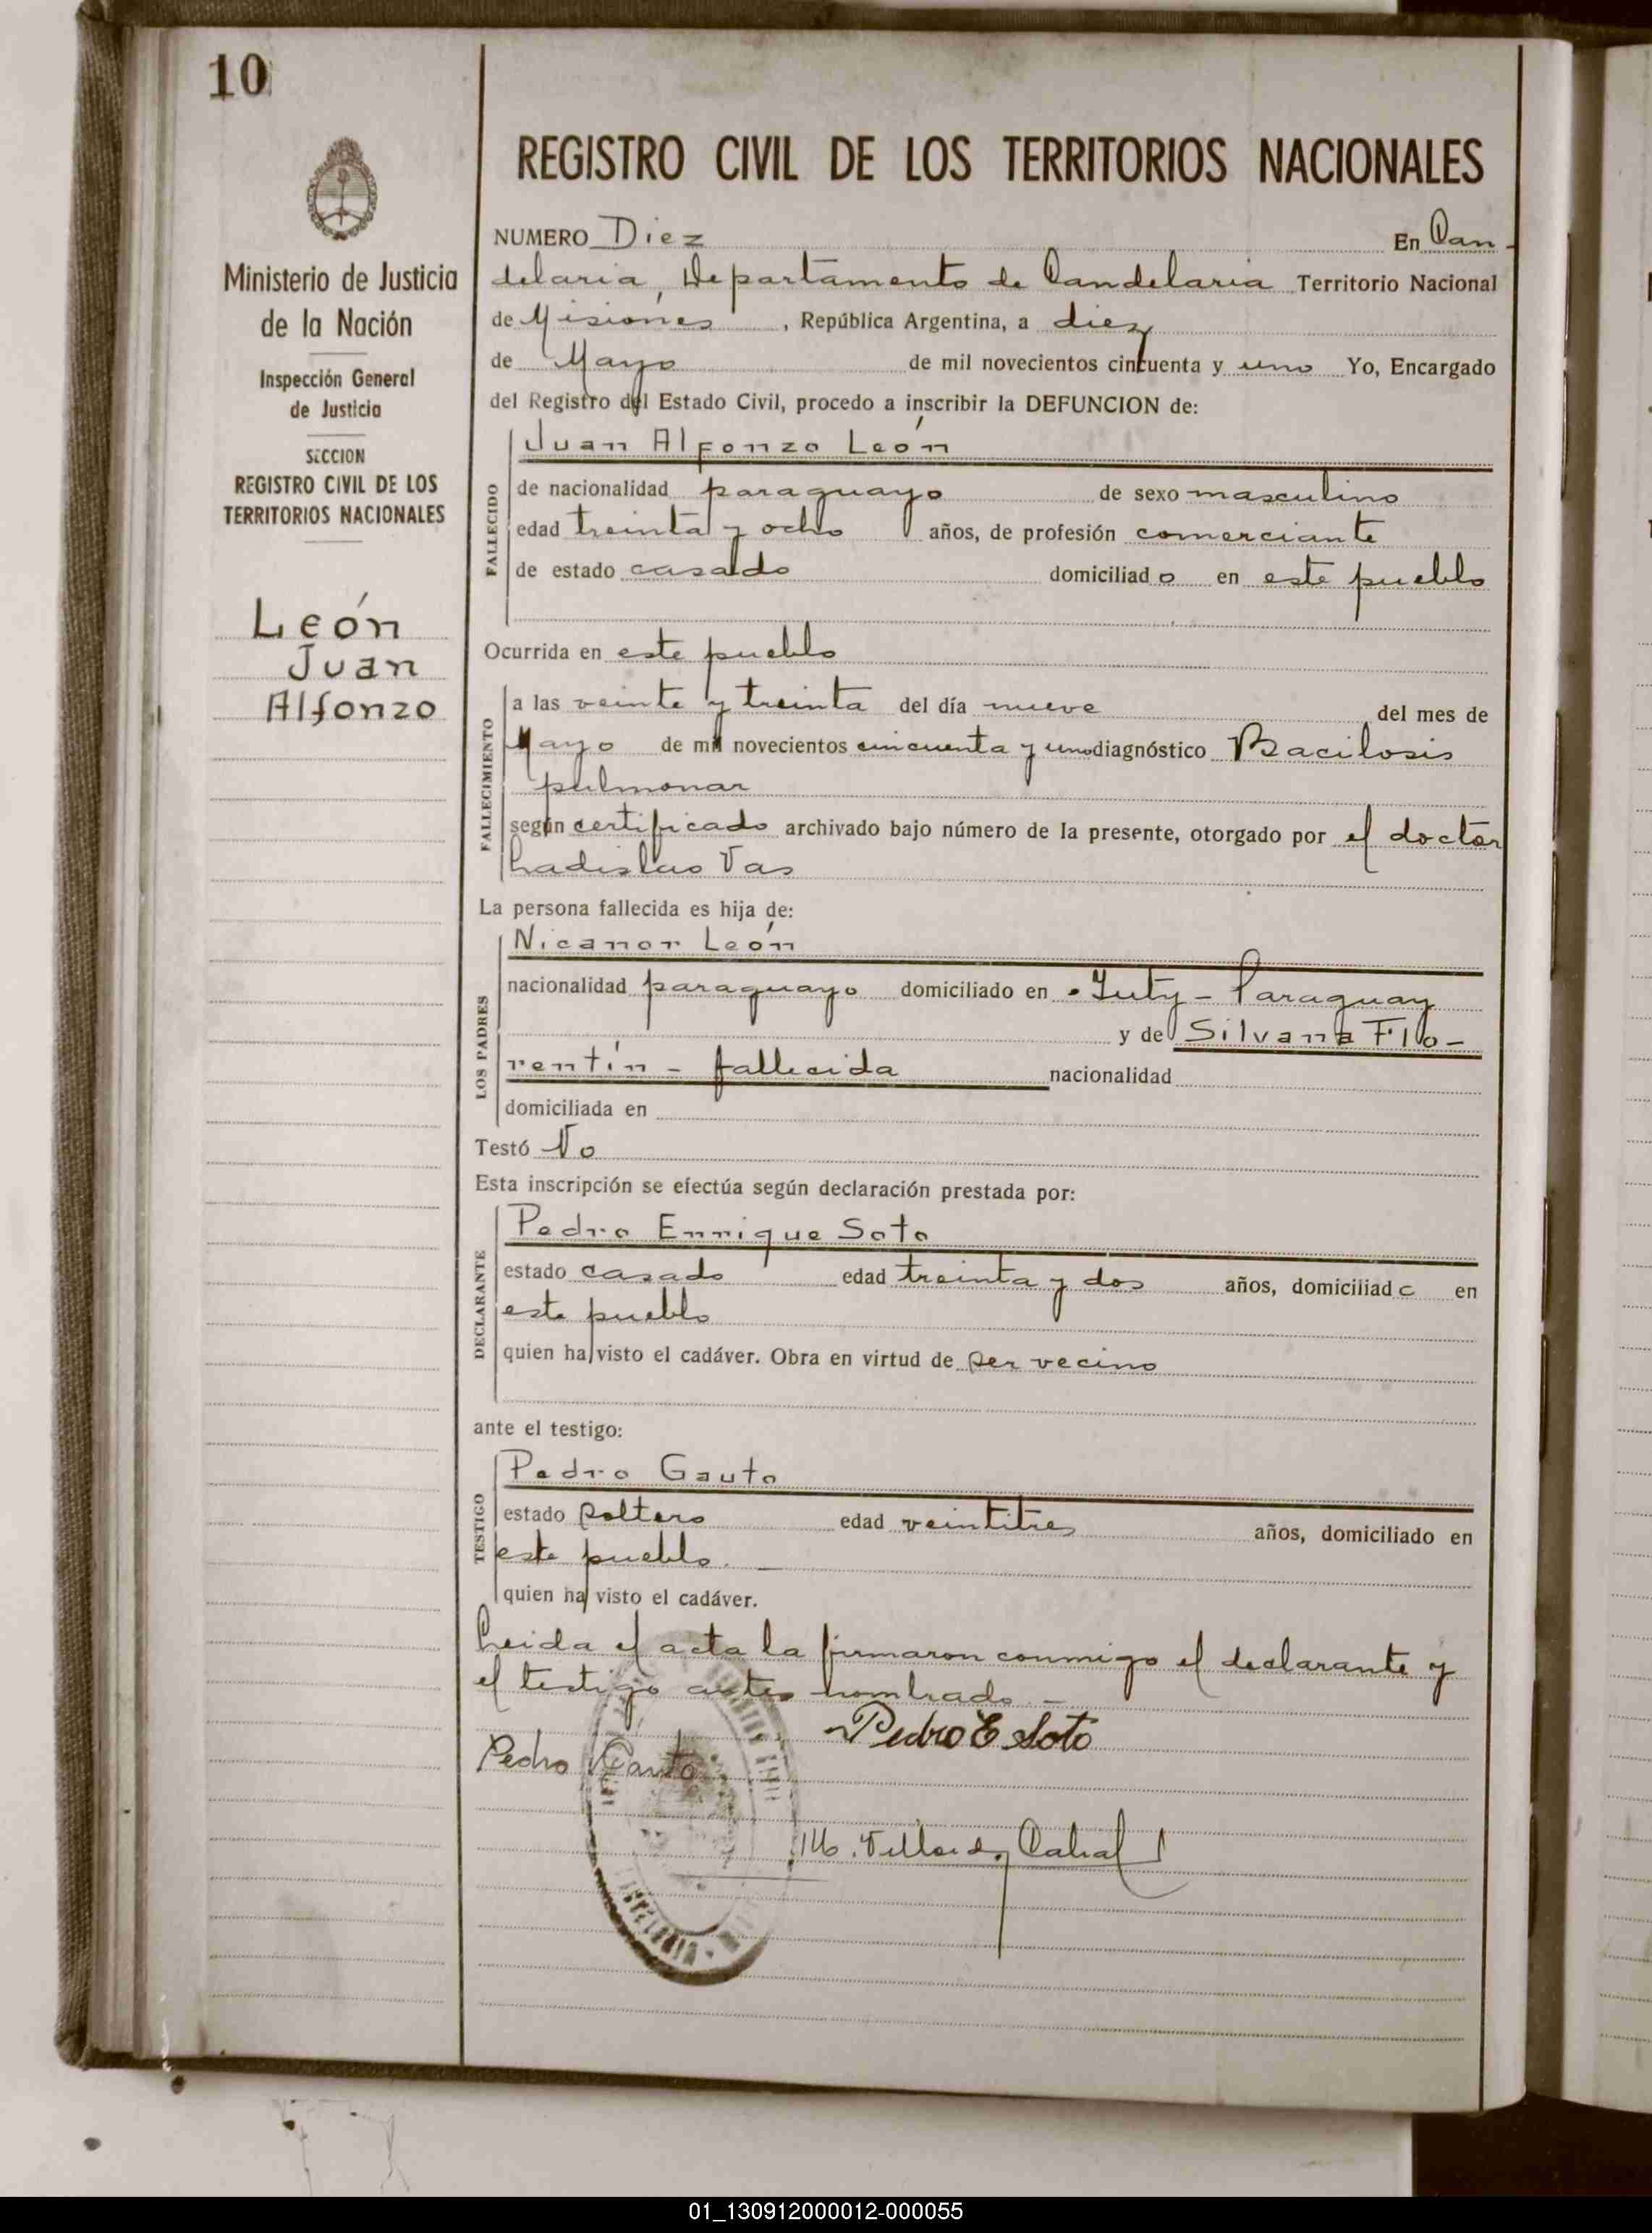 10
Ministerio de Justicia
de la Nación
Inspección General
de Justicia
SECCION
REGISTRO CIVIL DE LOS
TERRITORIOS NACIONALES
León
Juan
Alfonzo
REGISTRO CIVIL DE LOS TERRITORIOS NACIONALES
NUMERO Diez En Can-
delaria, Departamento de Candelaria Territorio Nacional
de Misiones, República Argentina, a diez
de Mayo de mil novecientos cincuenta y uno Yo, Encargado
del Registro del Estado Civil, procedo a inscribir la DEFUNCION de:
FALLECIDO
Juan Alfonzo León
de nacionalidad paraguayo de sexo masculino
edad treinta y ocho años, de profesión comerciante
de estado casado domiciliado en este pueblo
Ocurrida en este pueblo
FALLECIMIENTO
a las veinte y treinta del día nueve del mes de
Mayo de mil novecientos cincuenta y uno diagnóstico Bacilosis
pulmonar
según certificado archivado bajo número de la presente, otorgado por el doctor
Ladislao Vas
La persona fallecida es hija de:
LOS PADRES
Nicanor León
nacionalidad paraguayo domiciliado en Yuty - Paraguay
y de Silvana Flo-
rentín - fallecida nacionalidad
domiciliada en
Testó No
Esta inscripción se efectúa según declaración prestada por:
DECLARANTE
Pedro Enrique Soto
estado casado edad treinta y dos años, domiciliado en
este pueblo
quien ha visto el cadáver. Obra en virtud de ser vecino
ante el testigo:
TESTIGO
Pedro Gauto
estado soltero edad veintitres años, domiciliado en
este pueblo.
quien ha visto el cadáver.
Leida el acta la firmaron conmigo el declarante y
el testigo antes nombrado. -
Pedro E Soto
Pedro Gauto
M. Cabral
01_130912000012-000055